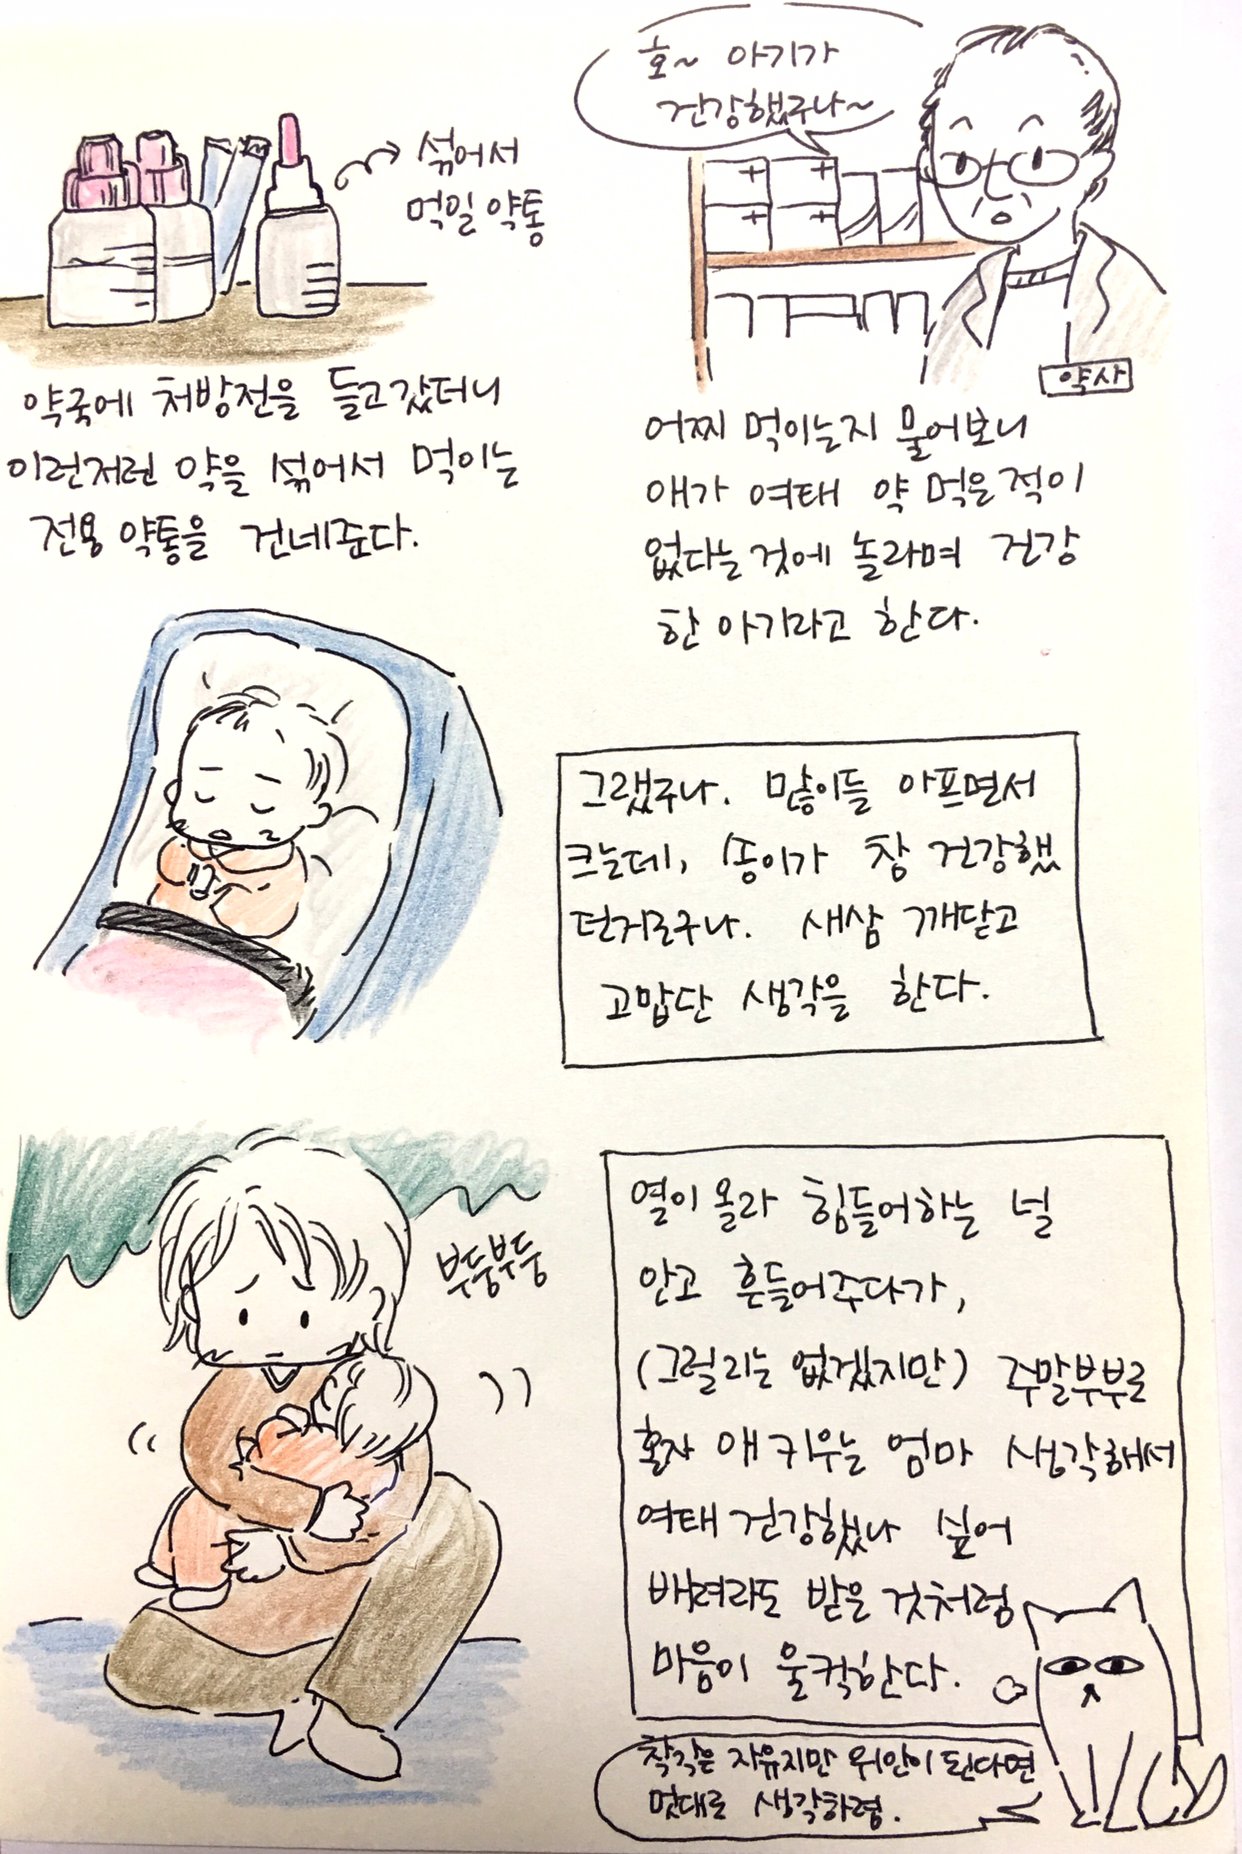 섞어서
먹일 약통
약국에 처방전을 들고갔더니
이런저런 약을 섞어서 먹이는
전용 약통을 건네준다.
호~ 아기가
건강했구나~
약사
어찌 먹이는지 물어보니
애가 여태 약 먹은적이
없다는것에 놀라며 건강
한 아기라고 한다.
그랬구나. 많이들 아프면서
크는데, 송이가 참 건강했
던거로구나. 새삼 깨닫고
고맙단 생각을 한다.
부둥부둥
열이 올라 힘들어하는 널
안고 흔들어주다가,
(그럴리는 없겠지만) 주말부부로
혼자 애 키우는 엄마 생각해서
여태 건강했나 싶어
배려라도 받은 것처럼
마음이 울컥한다.
착각은 자유지만 위안이 된다면
멋대로 생각하렴.